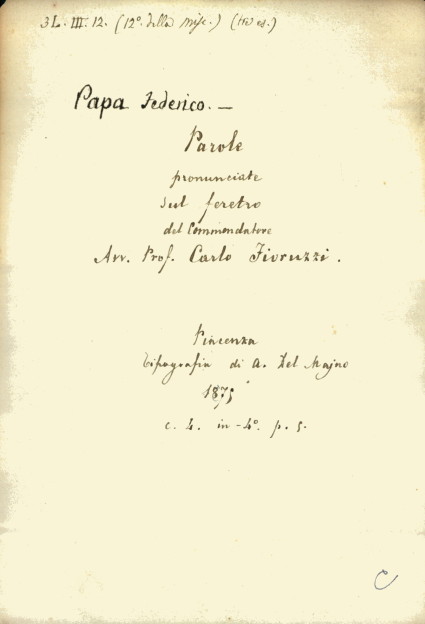 3 L. III. 12. (12º. della misc.) (tre es.)
Papa Federico. —
Parole
pronunciate
sul feretro
del Commendatore
Avv. Prof. Carlo Fioruzzi.
Piacenza
Tipografia di A. Del Majno
1875
c. 4. in-4º. p. 5.
C